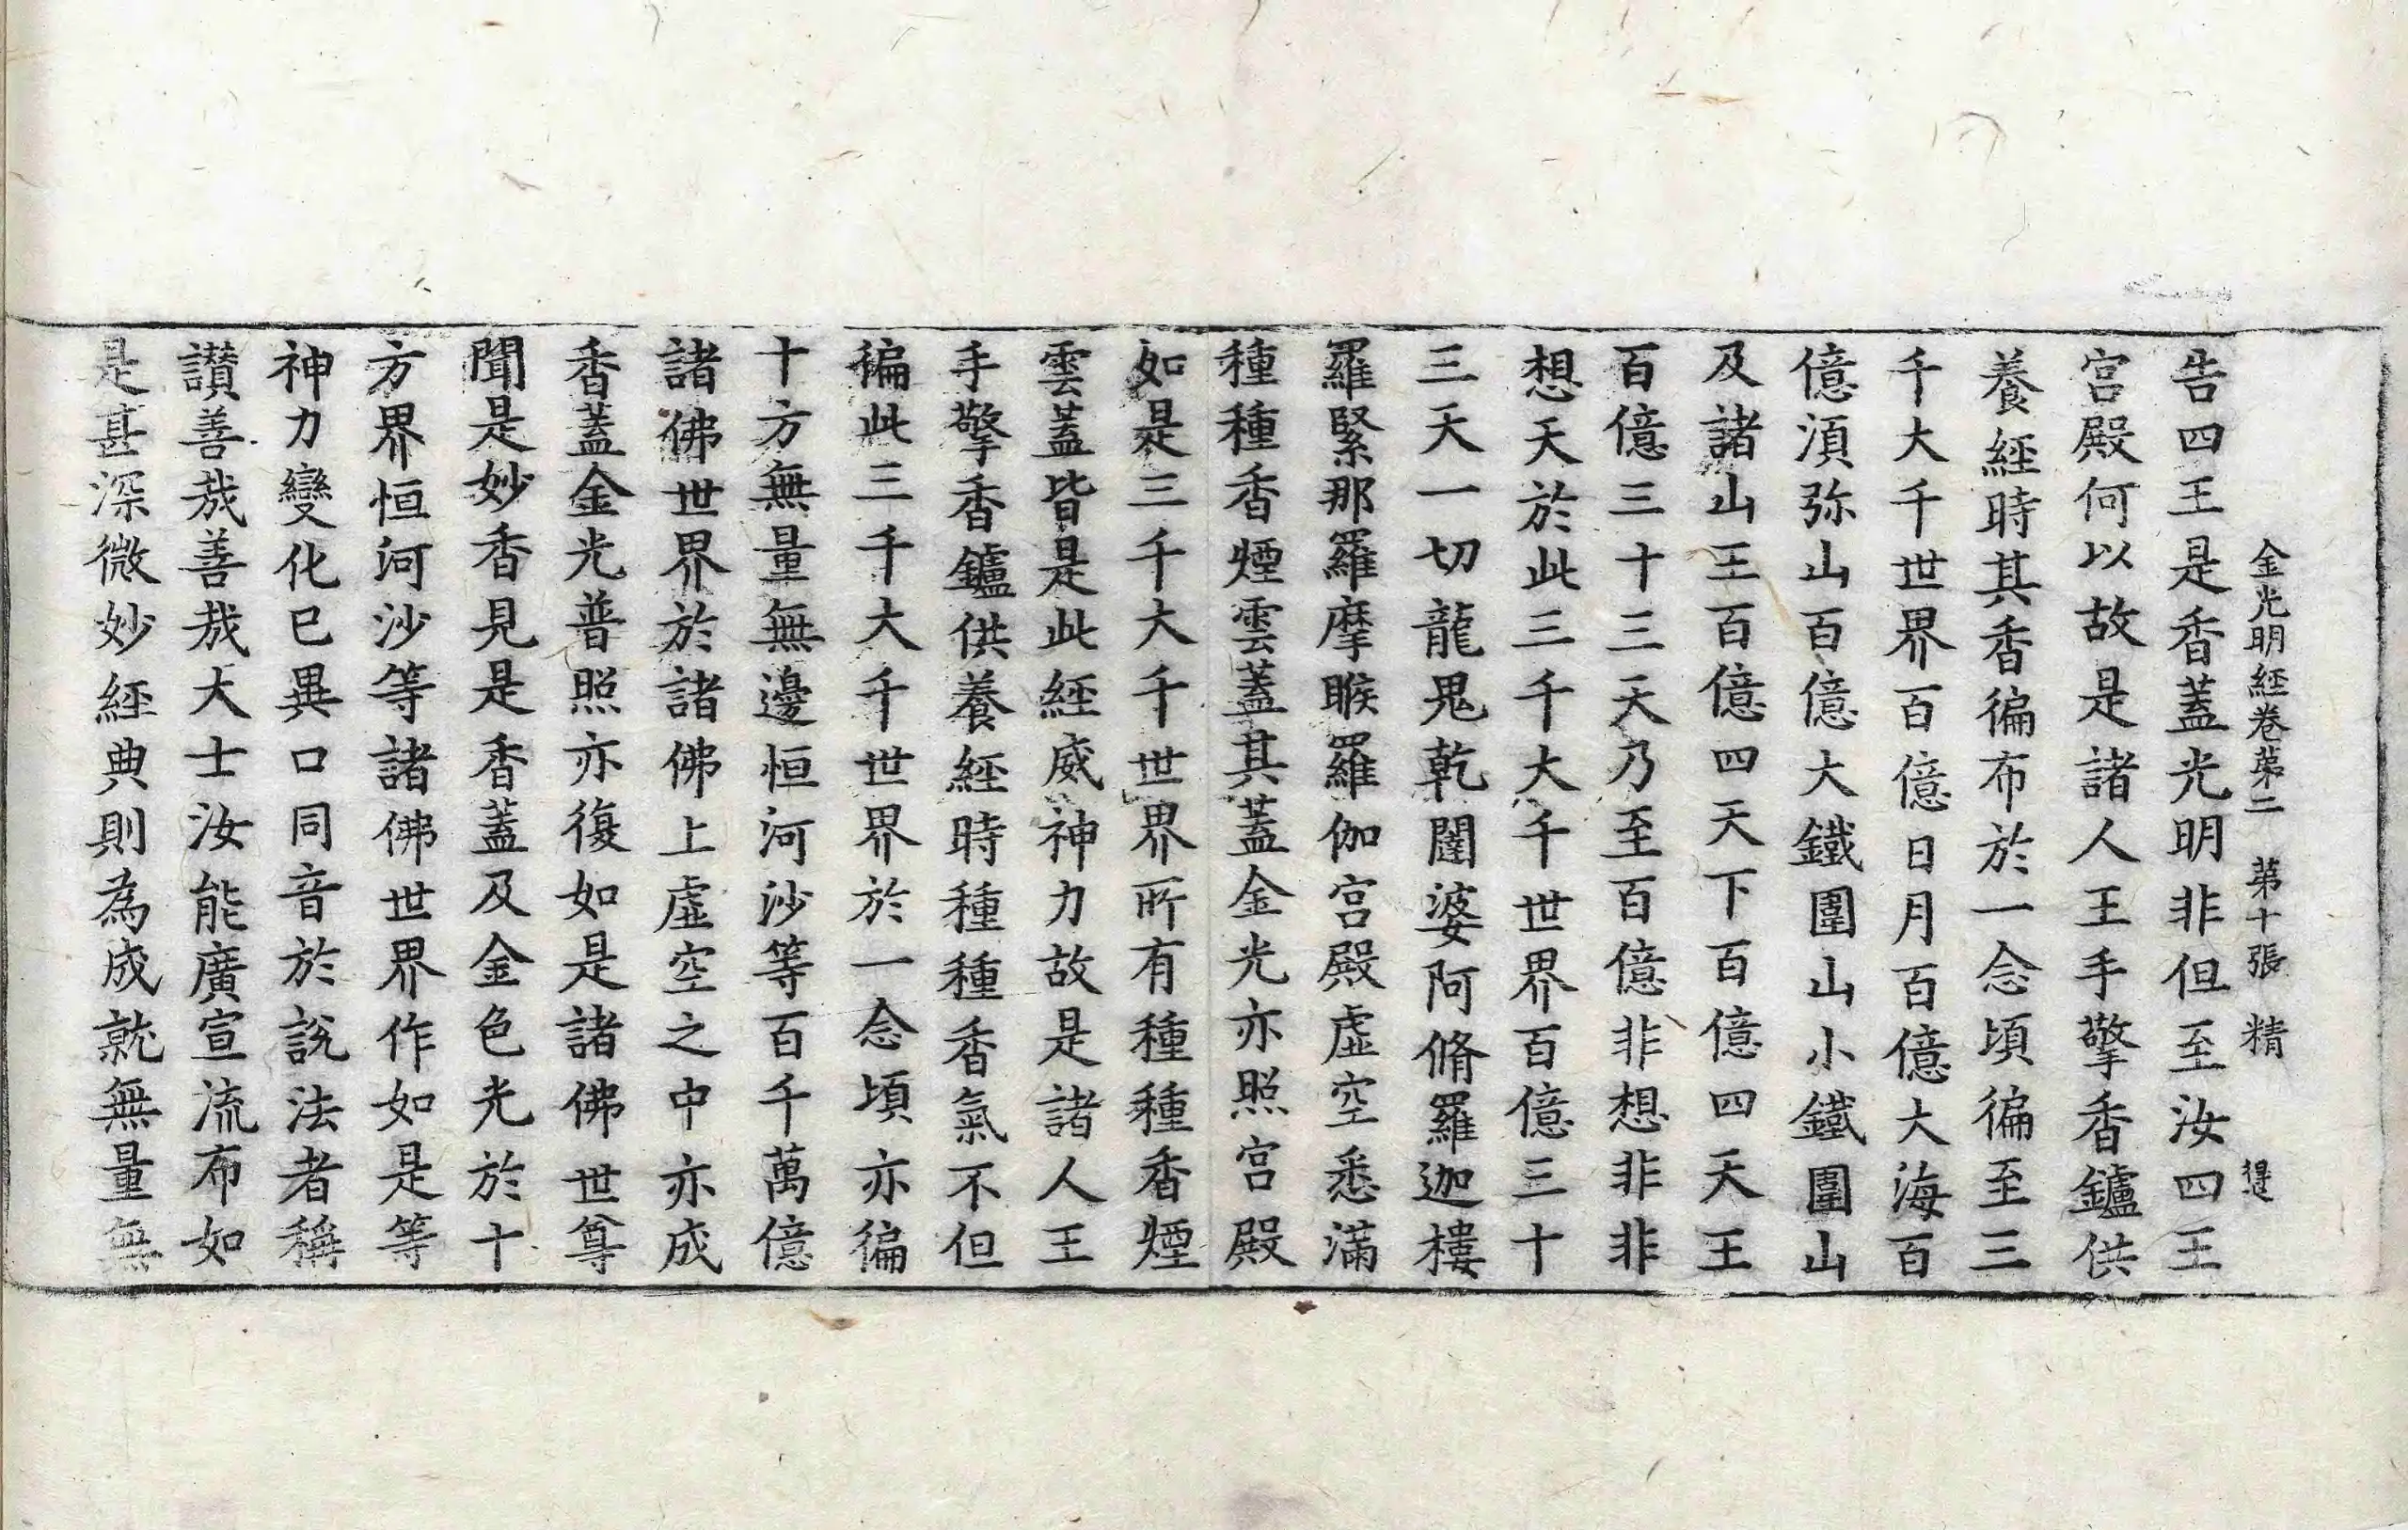 金光明經卷第二　第十張　精
告四王是香蓋光明非但至汝四王
宮殿何以故是諸人王手擎香鑪供
養經時其香徧布於一念頃徧至三
千大千世界百億日月百億大海百
億湏弥山百億大鐵圍山小鐵圍山
及諸山王百億四天下百億四天王
百億三十三天乃至百億非想非非
想天於此三千大千世界百億三十
三天一切龍鬼乾闥婆阿脩羅迦樓
羅緊那羅摩睺羅伽宮殿虛空悉滿
種種香煙雲蓋其蓋金光亦照宮殿
如是三千大千世界所有種種香煙
雲蓋皆是此經威神力故是諸人王
手擎香鑪供養經時種種香氣不但
徧此三千大千世界於一念頃亦徧
十方無量無邊恒河沙等百千萬億
諸佛世界於諸佛上虛空之中亦成
香蓋金光普照亦復如是諸佛世尊
聞是妙香見是香蓋及金色光於十
方界恒河沙等諸佛世界作如是等
神力變化已異口同音於說法者稱
讚善哉善哉大士汝能廣宣流布如
是甚深微妙經典則為成就無量無